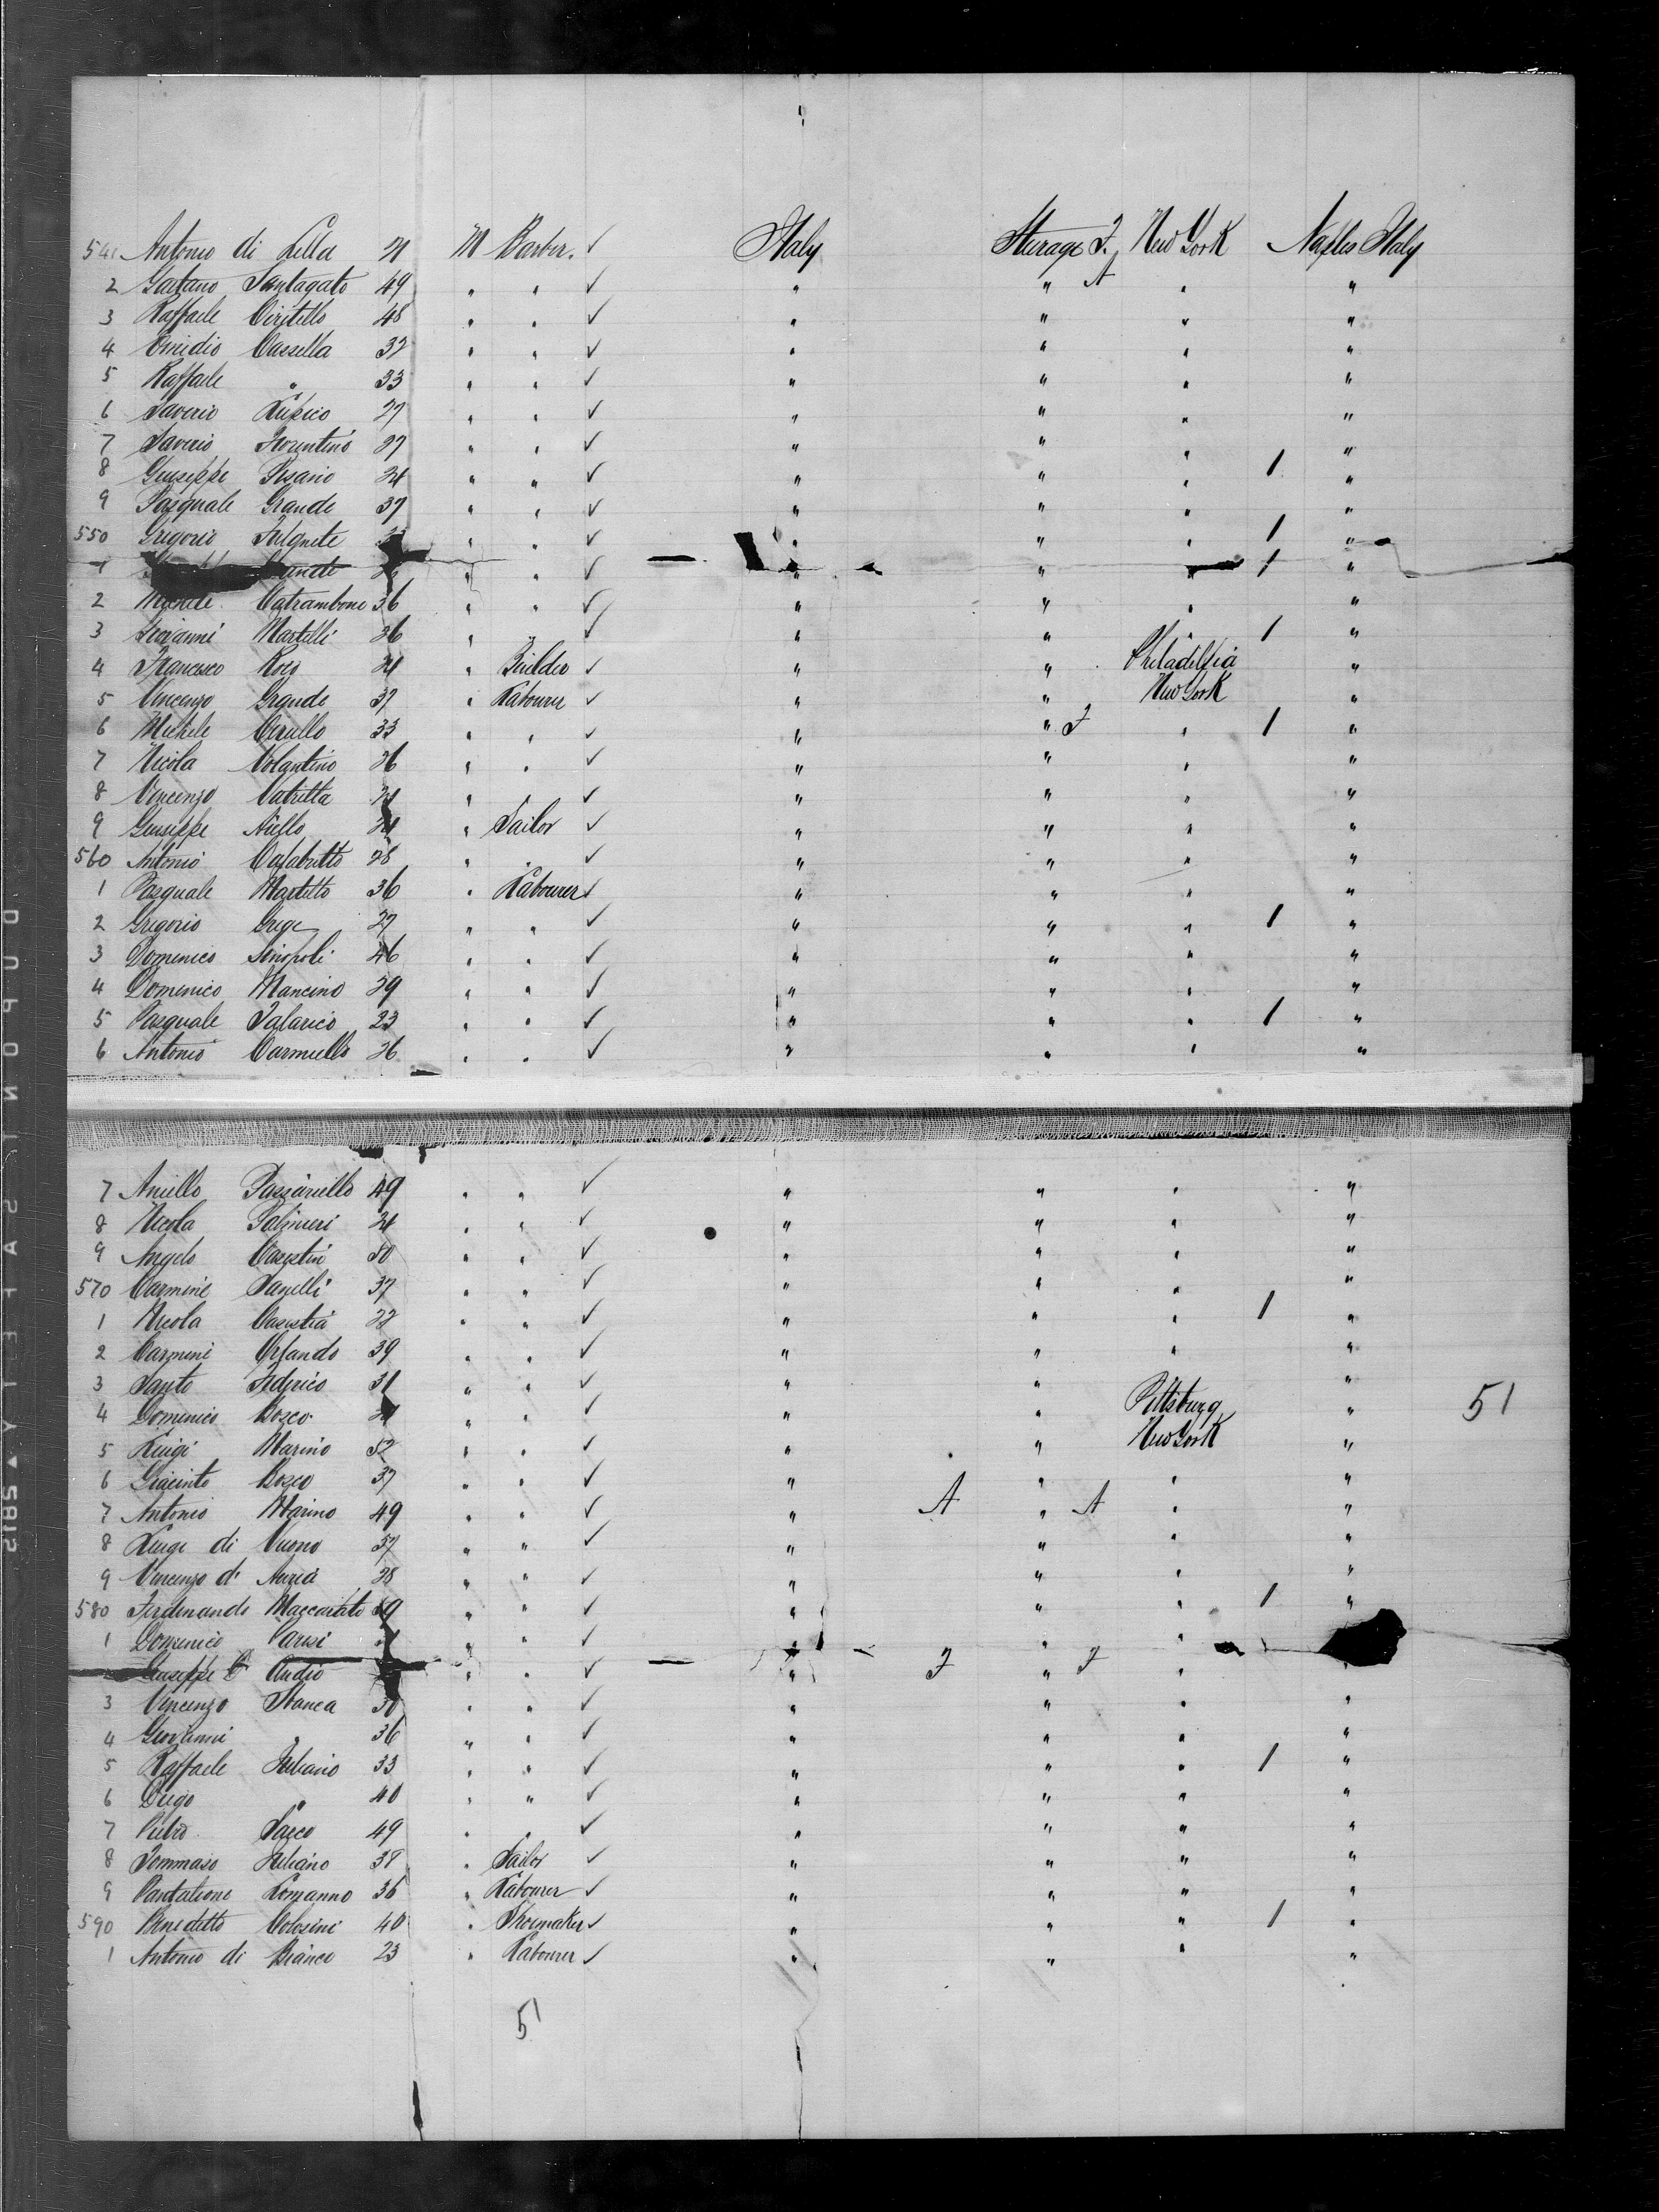 541 Antonio di Lella 21 M Barber. ✓ Italy Sterage F. New York Naples Italy
2 Gaetano Santagato 49 " " ✓ " " A " "
3 Raffaele Ciritello 48 " " ✓ " " " "
4 Emidio Cassella 32 " " ✓ " " " "
5 Raffaele " 33 " " ✓ " " " "
6 Saverio Lupico 27 " " ✓ " " " "
7 Saverio Fiorentino 27 " " ✓ " " " "
8 Giuseppe Pisano 24 " " ✓ " " " / "
9 Pasquale Grande 37 " " ✓ " " " "
550 Gregorio " " ✓ " " " / "
1 " " ✓ " " " / "
2 Michele Catrambone 36 " " ✓ " " " "
3 Giovanni Martelli 36 " " ✓ " " " / "
4 Francesco 24 " Builder ✓ " " Philadelfia "
5 Vincenzo Grande 37 " Labourer ✓ " " New York "
6 Michele Cirullo 33 " " ✓ " " F " / "
7 Nicola Volantino 26 " " ✓ " " " "
8 Vincenzo " " ✓ " " " "
9 Giuseppe Aiello 24 " Tailor ✓ " " " "
560 Antonio 28 " " ✓ " " " "
1 Pasquale Martello 36 " Labourer ✓ " " " "
2 Gregorio 27 " " ✓ " " " / "
3 Domenico Sinopoli 46 " " ✓ " " " "
4 Domenico Mancino 29 " " ✓ " " " "
5 Pasquale Talarico 23 " " ✓ " " " / "
6 Antonio Carmiello 26 " " ✓ " " " "
7 Aniello Passariello 49 " " ✓ " " " "
8 Nicola Palmieri 24 " " ✓ " " " "
9 Angelo 50 " " ✓ " " " "
570 Carmine 37 " " ✓ " " " "
1 Nicola 22 " " ✓ " " " / "
2 Carmine Orlando 39 " " ✓ " " " "
3 Santo Federico 31 " " ✓ " " " "
4 Domenico Bosco " " ✓ " " Pittsburg " 51
5 Luigi Marino 52 " " ✓ " " New York "
6 Giacinto Bosco 37 " " ✓ " " " "
7 Antonio Marino 49 " " ✓ " A " A " "
8 Luigi di Vuono 57 " " ✓ " " " "
9 Vincenzo d' Auria 28 " " ✓ " " " "
580 Ferdinando " " ✓ " " " / "
1 Domenico Parisi " " ✓ " " "
Giuseppe " " ✓ " F " F " "
3 Vincenzo Stanca 30 " " ✓ " " " "
4 Giovanni " 36 " " ✓ " " " "
5 Raffaele Juliano 33 " " ✓ " " " / "
6 Diego " 40 " " ✓ " " " "
7 Pietro Sacco 49 " " ✓ " " " "
8 Tommaso Juliano 38 " Tailor ✓ " " " "
9 Pantaleone Lomanno 36 " Labourer ✓ " " " "
590 Benedetto Colosini 40 " Shoemaker ✓ " " " / "
1 Antonio di Bianco 23 " Labourer ✓ " " " "
51